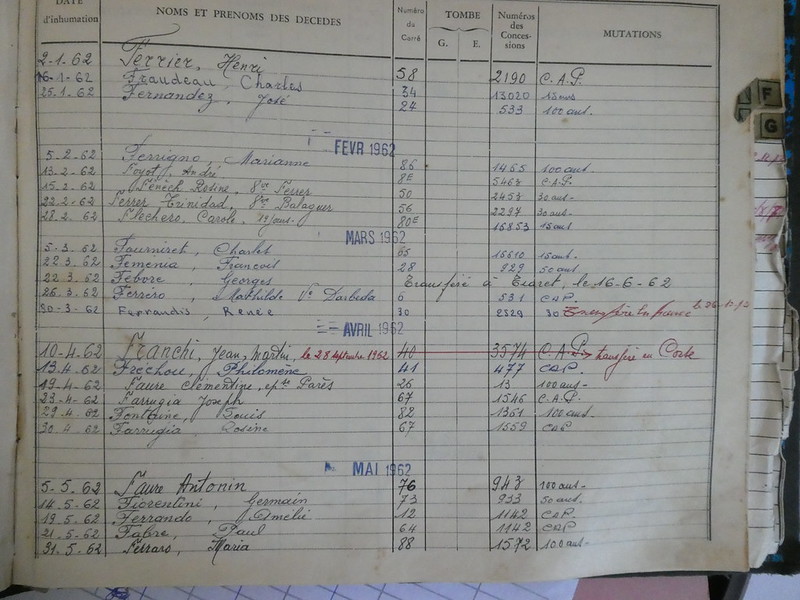 DATE d'inhumation NOMS ET PRENOMS DES DECEDES Numéro du Carré TOMBE G. E. Numéros des Concessions MUTATIONS
2-1-62 Ferrier, Henri 58 2190 C.A.P.
16-1-62 Fraudeau, Charles 34 13020 15 ans
25.1.62 Fernandez, José 24 533 100 ans.
F
G
FEVR 1962
5-2-62 Ferrigno, Marianne 86 1465 100 ans.
13-2-62 André 8E 5463 C.A.P.
15-2-62 Rosine. Vve Ferrer 50 2453 30 ans-
22-2-62 Ferrer Trinidad, Vve Balaguer 56 2297 30 ans.
28.2.62 Flechero, Carole. 80E 16853 15 ans
MARS 1962
5-3-62 Fourniret, Charles 65 16610 15 ans.
22.3.62 Femenia, François 28 829 50 ans.
22.3.62 Febore, Georges Transféré à , le 16-6-62
26.3.62 Ferrero, Mathilde Ve 6 531 CAP.
30-3-62 Ferrandis, Renée 30 2329 30 Transférée en France
AVRIL 1962
10-4.62 Franchi, Jean, Martin, le 28 septembre 1962 40 3574 C.A.P. transféré en Corse
13-4.62 Fréchou, Philomène 41 477 CAP.
19-4-62 Faure Clémentine, épse Parès 26 13 100 ans-
23-4-62 Farrugia Joseph 67 1546 C.A.P.
29.4.62 Fontaine, Louis 82 1361 100 ans.
30.4.62 Farrugia Rosine 67 1559 CAP
MAI 1962
5-5.62 Faure Antonin 76 943 100 ans-
14.5-62 Fiorentini, Germain 73 933 50 ans.
19.5-62 Ferrando, Amélie 12 1142 CAP.
21.5-62 Fabre, Paul 64 1142 CAP.
31.5.62 Ferraro, Maria 88 1572 100 ans-